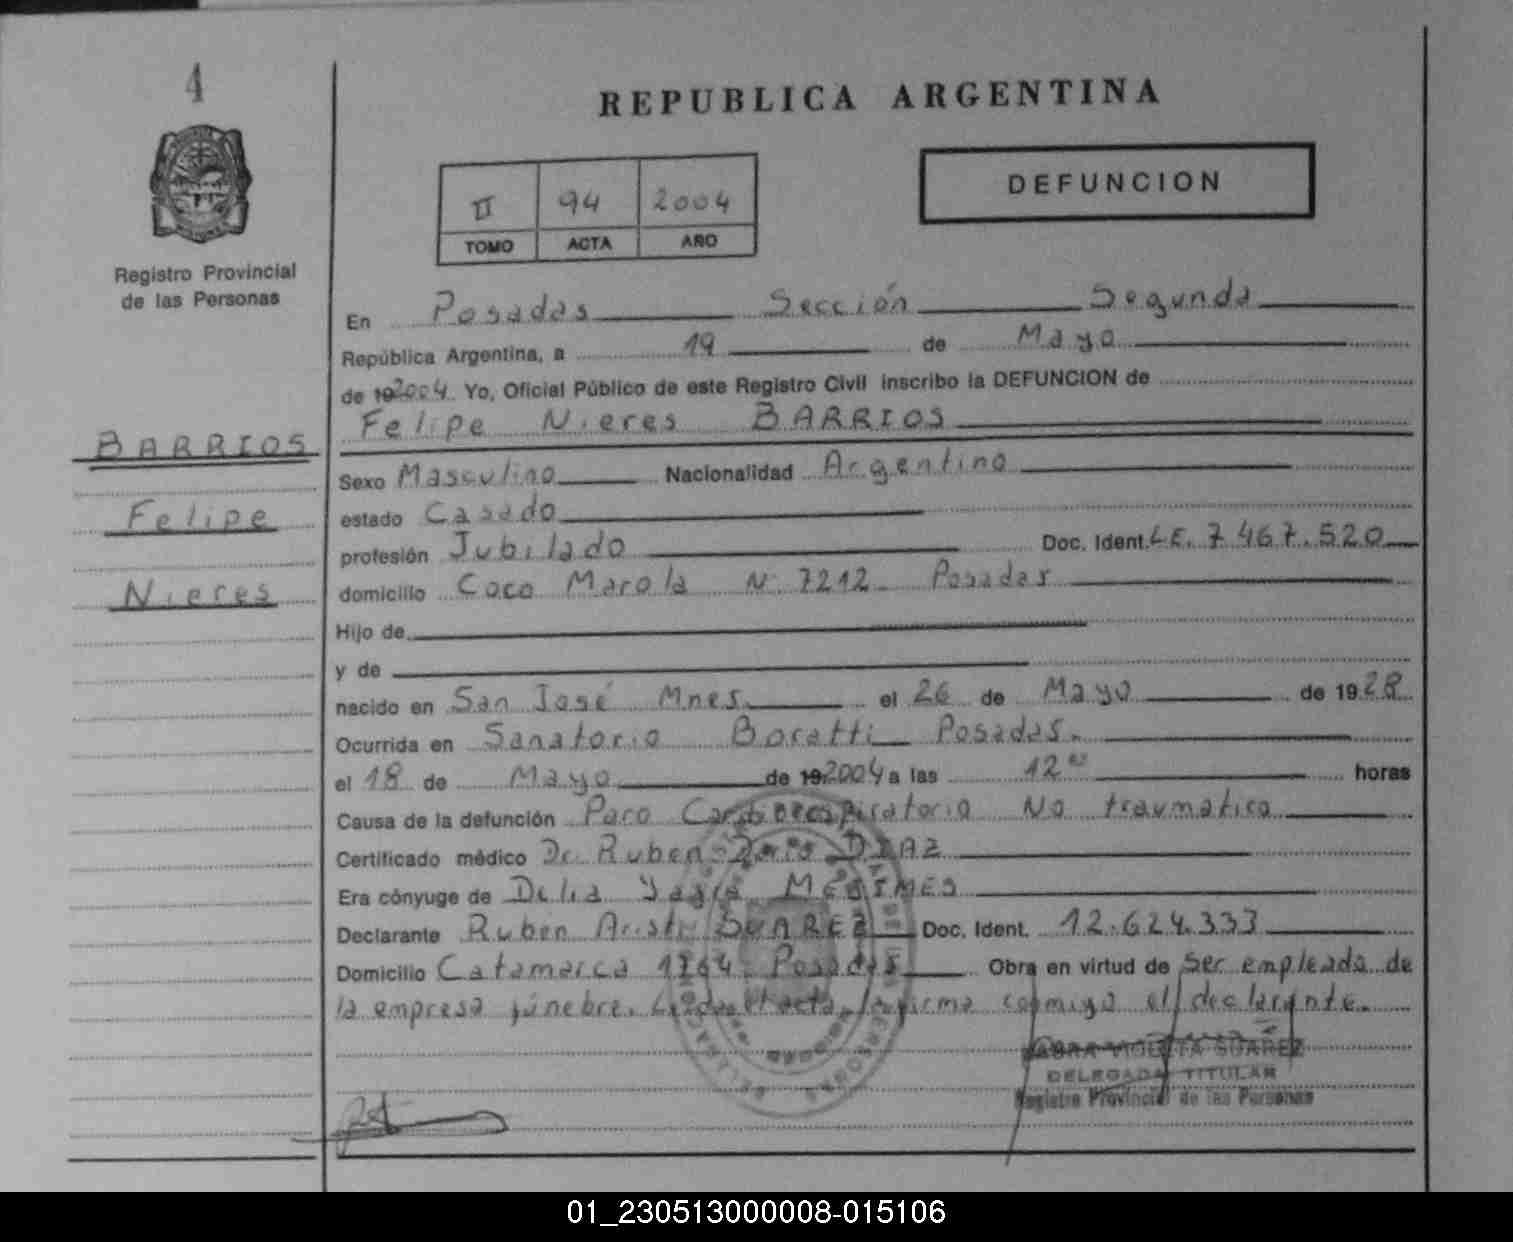 4
REPUBLICA ARGENTINA
DEFUNCION
II 94 2004
TOMO ACTA AÑO
Registro Provincial
de las Personas
En Posadas Sección Segunda
República Argentina, a 19 de Mayo
de 192004 Yo, Oficial Público de este Registro Civil inscribo la DEFUNCION de
Felipe Nieres BARRIOS
BARRIOS
Felipe
Nieres
Sexo Masculino Nacionalidad Argentino
estado Casado
profesión Jubilado Doc. Ident. L.E. 7 467.520
domicilio Coco Marola N 7212 Posadas
Hijo de
y de
nacido en San José Mnes. el 26 de Mayo de 1928
Ocurrida en Sanatorio Boratti Posadas.
el 18 de Mayo de 192004 a las 12 horas
Causa de la defunción Paro Cardiorespiratorio No traumatico
Certificado médico Dr. Ruben Dario DIAZ
Era cónyuge de Delia
Declarante Ruben SUAREZ Doc. Ident. 12.624.333
Domicilio Catamarca 1764 Posadas Obra en virtud de Ser empleado de
la empresa fúnebre. Leída el acta, la firma conmigo el declarante.
VIOLETA SUAREZ
DELEGADA TITULAR
Registro Provincial de las Personas
01_230513000008-015106